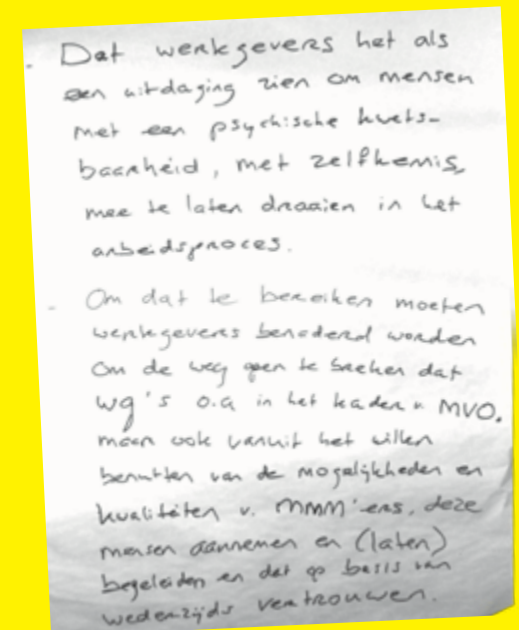 - Dat werkgevers het als
een uitdaging zien om mensen
met een psychische kwets-
baarheid, met zelfkennis,
mee te laten draaien in het
arbeidsproces.
- Om dat te bereiken moeten
werkgevers benaderd worden
om de weg open te breken dat
wg's o.a in het kader v. MVO.
maar ook vanuit het willen
benutten van de mogelijkheden en
kwaliteiten v. MMM'ers, deze
mensen aannemen en (laten)
begeleiden en dat op basis van
wederzijds vertrouwen.